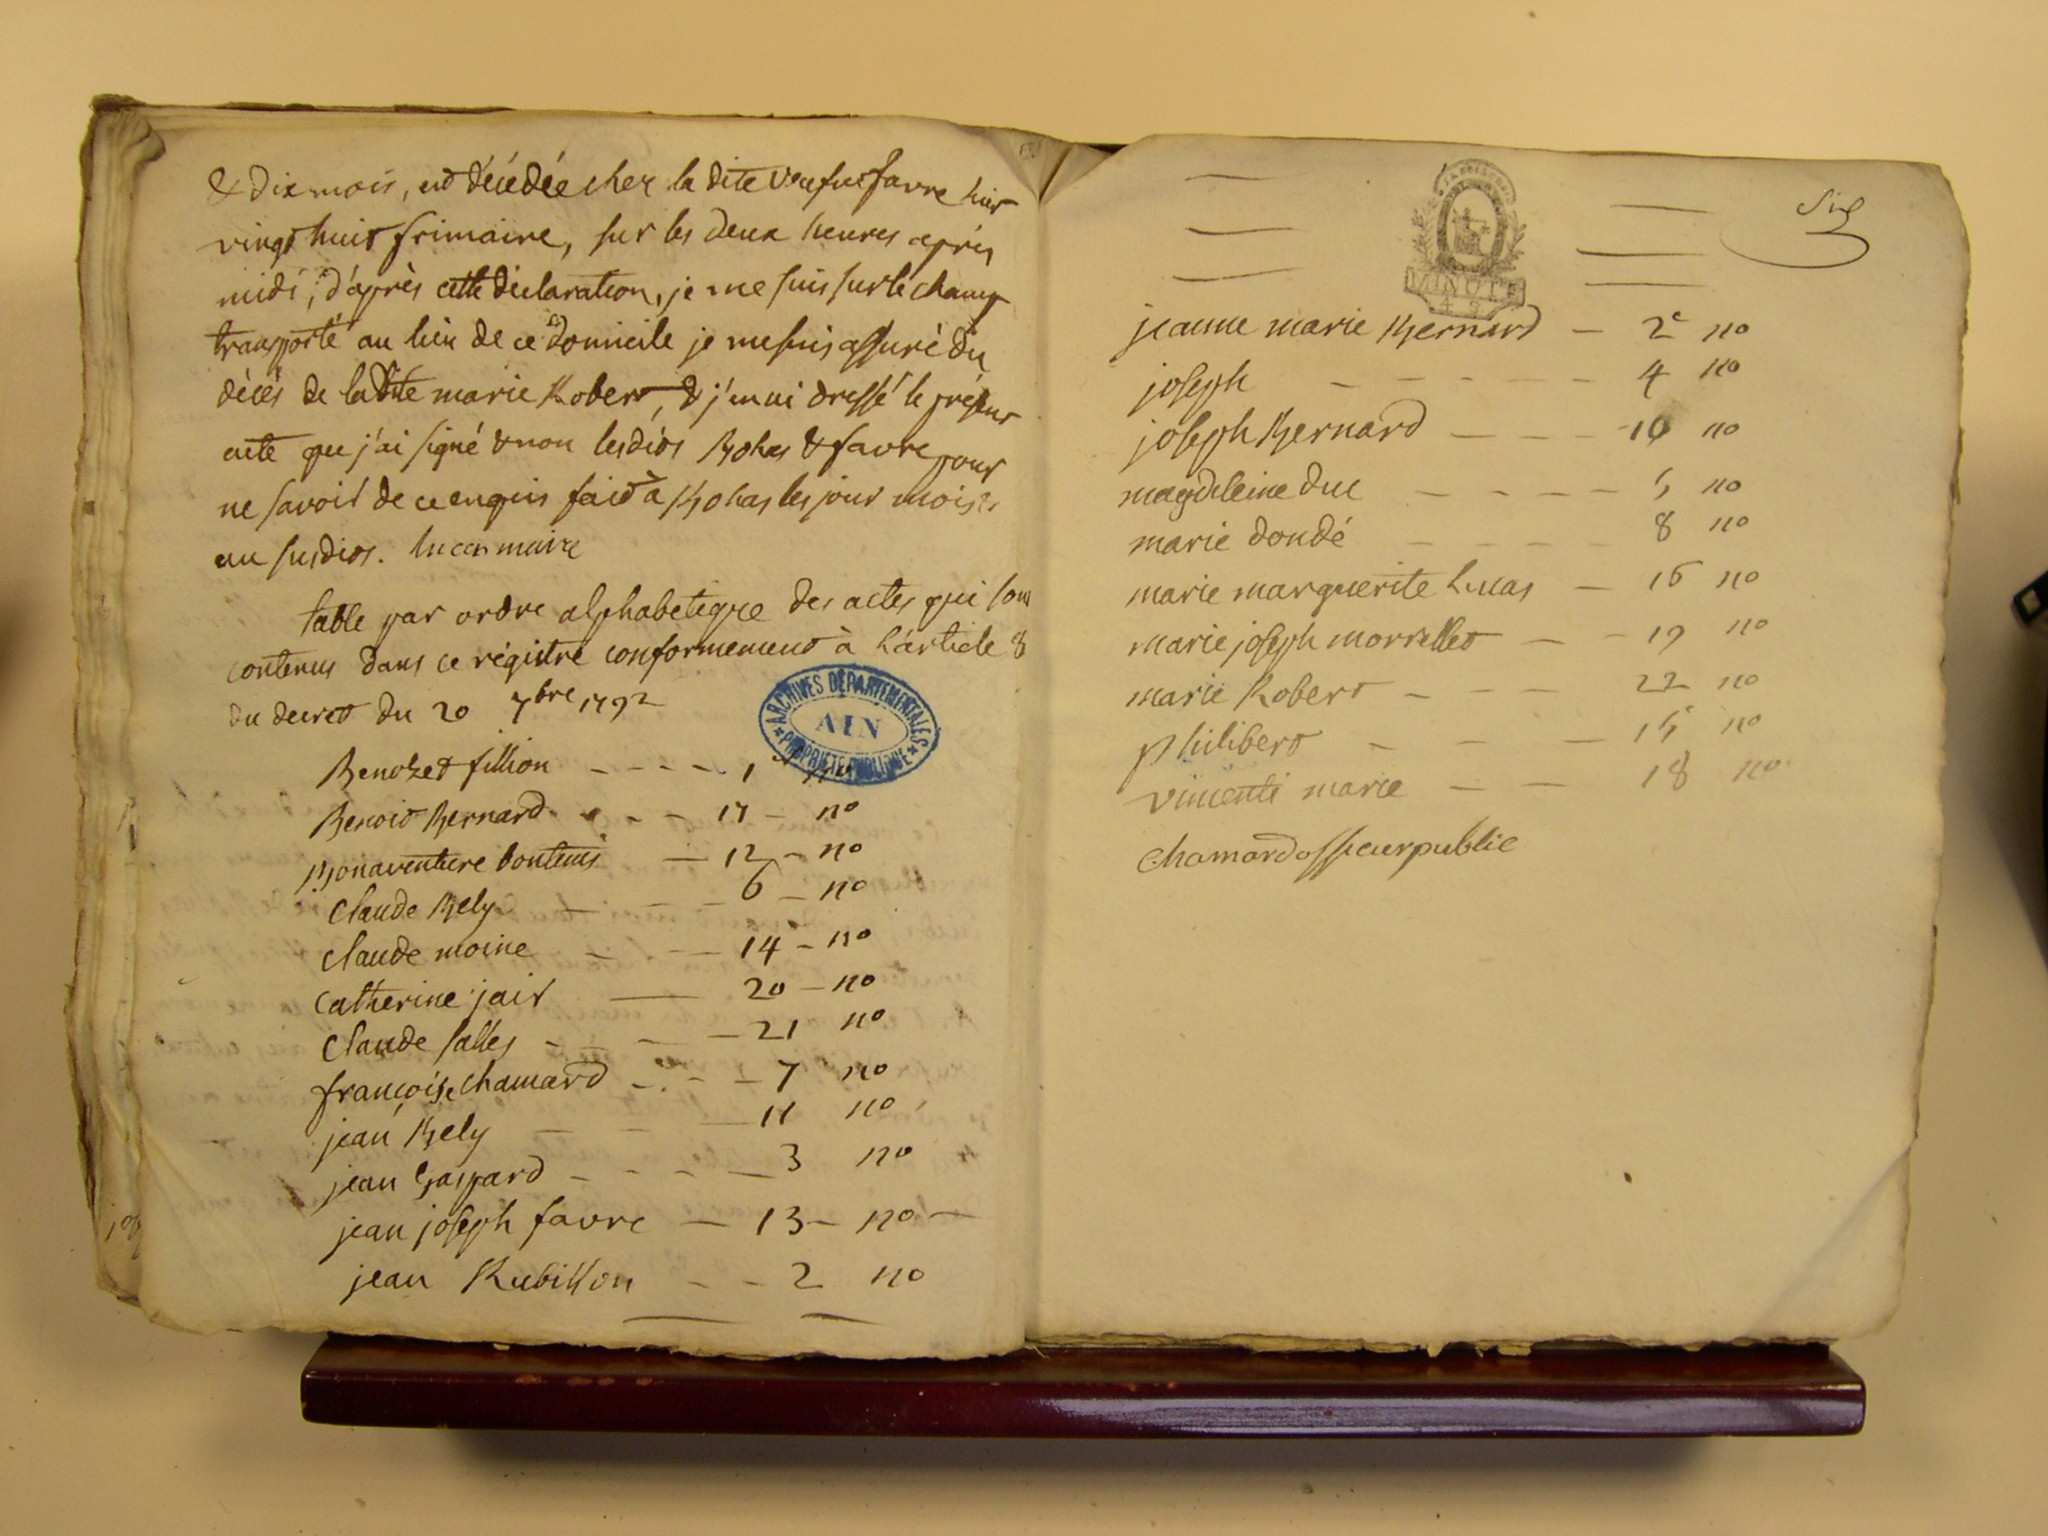 & dix mois, est décédée chez la dite veufve favre hier
vingt huit frimaire, sur les deux heures après
midi, d'après cette déclaration, je me suis sur le champ
transporté au lieu de ce domicile je me suis assuré du
décès de ladite marie Robert, & j'en ai dressé le présent
acte que j'ai signé & non lesdits Bohas & favre pour
ne savoir de ce enquis fait à Bohas les jour mois &
an susdits. lucas maire
table par ordre alphabetique des actes qui sont
contenus dans ce régistre conformement à l'article 8
du decret du 20 7bre 1792
ARCHIVES DÉPARTEMENTALES
AIN
PROPRIÉTÉ PUBLIQUE
Benoit fillion - - - - 1 no
Benoit Bernard - - - 17 - no
Bonaventure bontems - 12 - no
Claude Bely - - - 6 - no
Claude moine - - 14 - no
Catherine jait - 20 - no
Claude salles - - - 21 no
françoise Chamard - - - 7 no
jean Bely - - - 11 no
jean Gaspard - - - - 3 no
jean joseph favre - 13 - no -
jean Rubillon - - 2 no
MINUTE
Six
jeanne marie Bernard - 2e no
joseph - - - - - 4 no
joseph Bernard - - - 10 no
magdeleine duc - - - - 5 no
marie dondé - - - - 8 no
marie marguerite Lucas - 16 no
marie joseph morrellet - - 19 no
marie Robert - - - 22 no
philibert - - - 15 no
vincente marie - - 18 no
Chamard officeur public